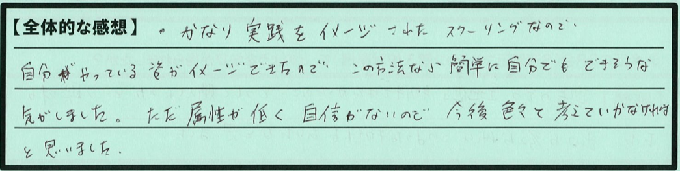 【全体的な感想】 ・かなり実践をイメージされたスクーリングなので、
自分がやっている姿がイメージできたので、この方法なら簡単に自分でもできそうな
気がしました。ただ属性が低く自信がないので今後色々て考えていかなければ
と思いました。